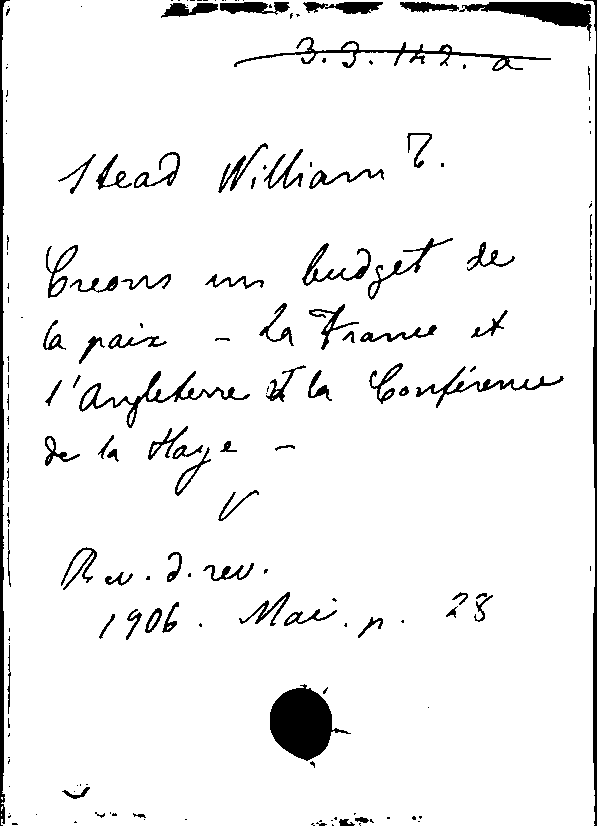 3.3.142.a
Stead William T.
Creons un budget de
la paix - La France et
l'Angleterre et la Conférence
de la Haye -
V
Rev. d. rev.
1906. Mai. p. 28